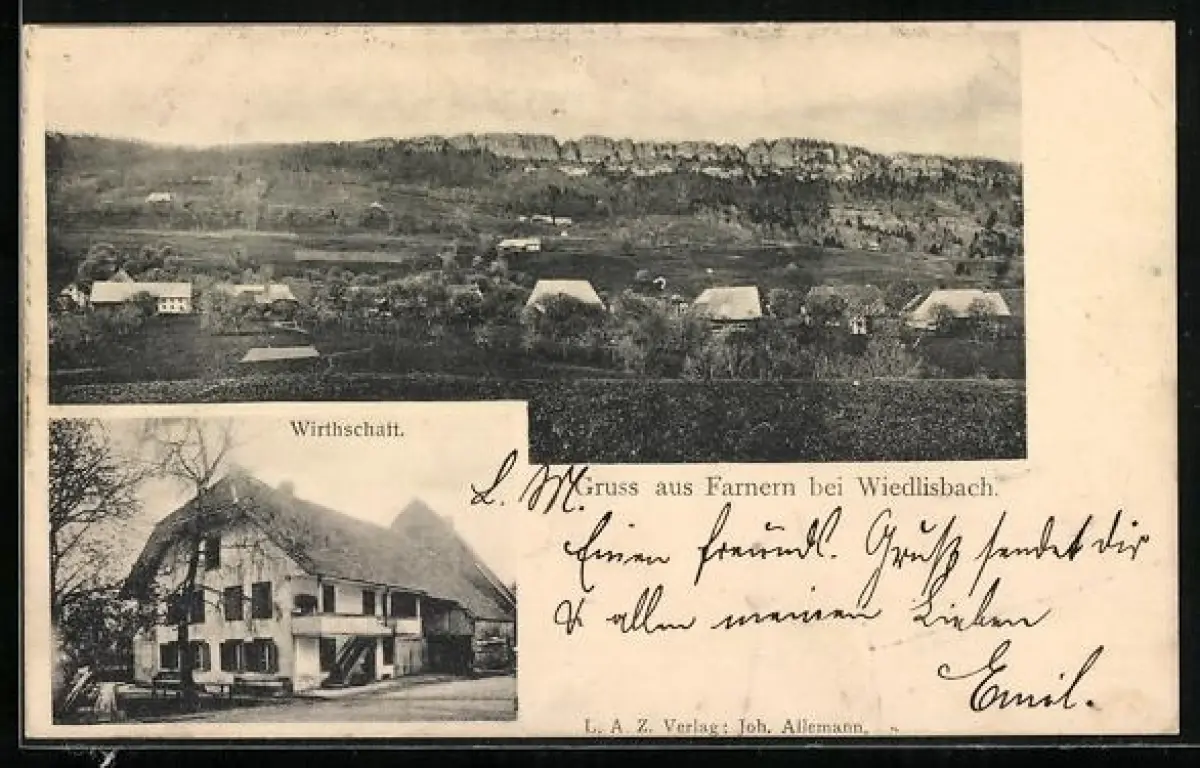 Wirthschaft.
L. M.
Gruss aus Farnern bei Wiedlisbach.
Einen freundl. Gruß sendet dir
& allen meinen Lieben
Emil.
L. A. Z. Verlag: Joh. Allemann.